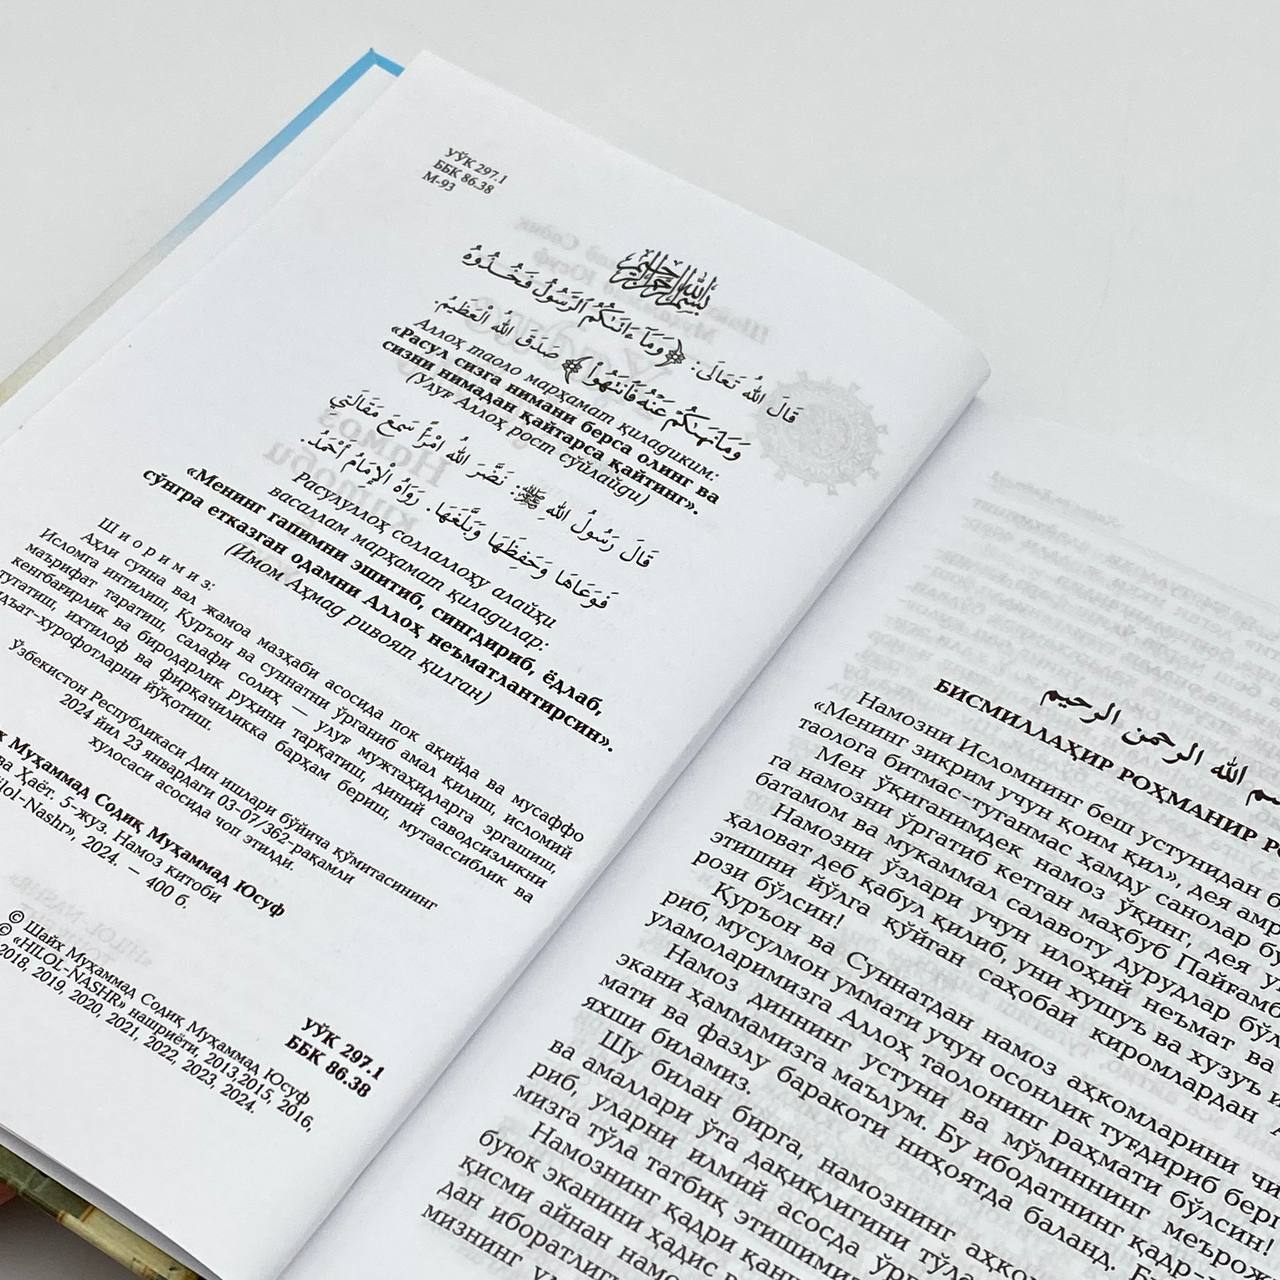 УЎК 297.1
ББК 86.38
М-93
بسم الله الرحمن الرحيم
قَالَ اللهُ تَعَالَى: ﴿وَمَآ ءَاتَىٰكُمُ ٱلرَّسُولُ فَخُذُوهُ
وَمَا نَهَىٰكُمْ عَنْهُ فَٱنتَهُوا۟﴾ صَدَقَ اللهُ الْعَظِيمُ.
Аллоҳ таоло марҳамат қиладиким:
«Расул сизга нимани берса олинг ва
сизни нимадан қайтарса қайтинг».
(Улуғ Аллоҳ рост сўйлайди)
قَالَ رَسُولُ اللهِ ﷺ: نَضَّرَ اللهُ امْرَأً سَمِعَ مَقَالَتِي
فَوَعَاهَا وَحَفِظَهَا وَبَلَّغَهَا. رَوَاهُ الْإِمَامُ أَحْمَدُ.
Расулуллоҳ соллаллоҳу алайҳи
васаллам марҳамат қиладилар:
«Менинг гапимни эшитиб, сингдириб, ёдлаб,
сўнгра етказган одамни Аллоҳ неъматлантирсин».
(Имом Аҳмад ривоят қилган)
Шиоримиз:
Аҳли сунна вал жамоа мазҳаби асосида пок ақийда ва мусаффо
Исломга интилиш, Қуръон ва суннатни ўрганиб амал қилиш, исломий
маърифат таратиш, салафи солиҳ — улуғ мужтаҳидларга эргашиш,
кенгбағирлик ва биродарлик руҳини тарқатиш, диний саводсизликни
тугатиш, ихтилоф ва фирқачиликка барҳам бериш, мутаассиблик ва
хурофотларни йўқотиш.
Ўзбекистон Республикаси Дин ишлари бўйича қўмитасининг
2024 йил 23 январдаги 03-07/362-рақамли
хулосаси асосида чоп этилди.
Муҳаммад Содиқ Муҳаммад Юсуф
ва Ҳаёт. 5-жуз. Намоз китоби
Nashr», 2024. — 400 б.
УЎК 297.1
ББК 86.38
© Шайх Муҳаммад Содиқ Муҳаммад Юсуф
© «HILOL-NASHR» нашриёти, 2013, 2015, 2016,
2018, 2019, 2020, 2021, 2022, 2023, 2024.
الله الرحمن الرحيم
БИСМИЛЛАҲИР РОҲМАНИР
Намозни Исломнинг беш устунидан
«Менинг зикрим учун қоим қил», дея
таолога битмас-туганмас ҳамду санолар
Мен ўқиганимдек намоз ўқинг, дея
га намозни ўргатиб кетган маҳбуб
батамом ва мукаммал салавоту дурудлар
Намозни ўзлари учун илоҳий неъмат ва
ҳаловат деб қабул қилиб, уни хушуъ ва хузуъ
этишни йўлга қўйган саҳобаи киромлардан
рози бўлсин!
Қуръон ва Суннатдан намоз аҳкомларини
риб, мусулмон уммати учун осонлик туғдириб
уламоларимизга Аллоҳ таолонинг раҳмати бўлсин!
Намоз диннинг устуни ва мўминнинг
экани ҳаммамизга маълум. Бу ибодатнинг
мати ва фазлу баракоти ниҳоятда баланд.
яхши биламиз.
Шу билан бирга, намознинг
ва амаллари ўта дақиқлигини
риб, уларни илмий асосда
мизга тўла татбиқ этишимиз
Намознинг қадри
буюк эканини ҳадис
қисми айнан
дан
мизнинг